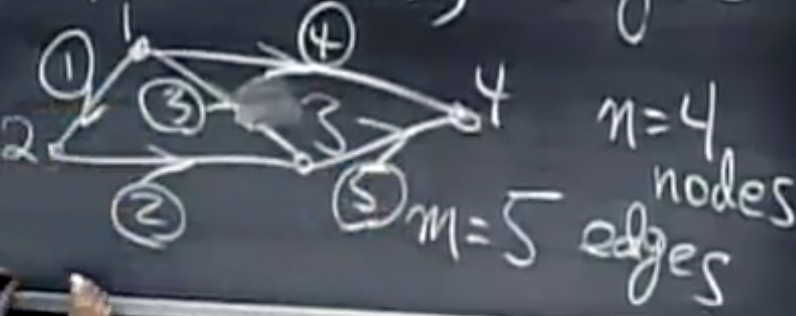 1
④
①
③
3
4
2
②
⑤
n=4
nodes
m=5 edges